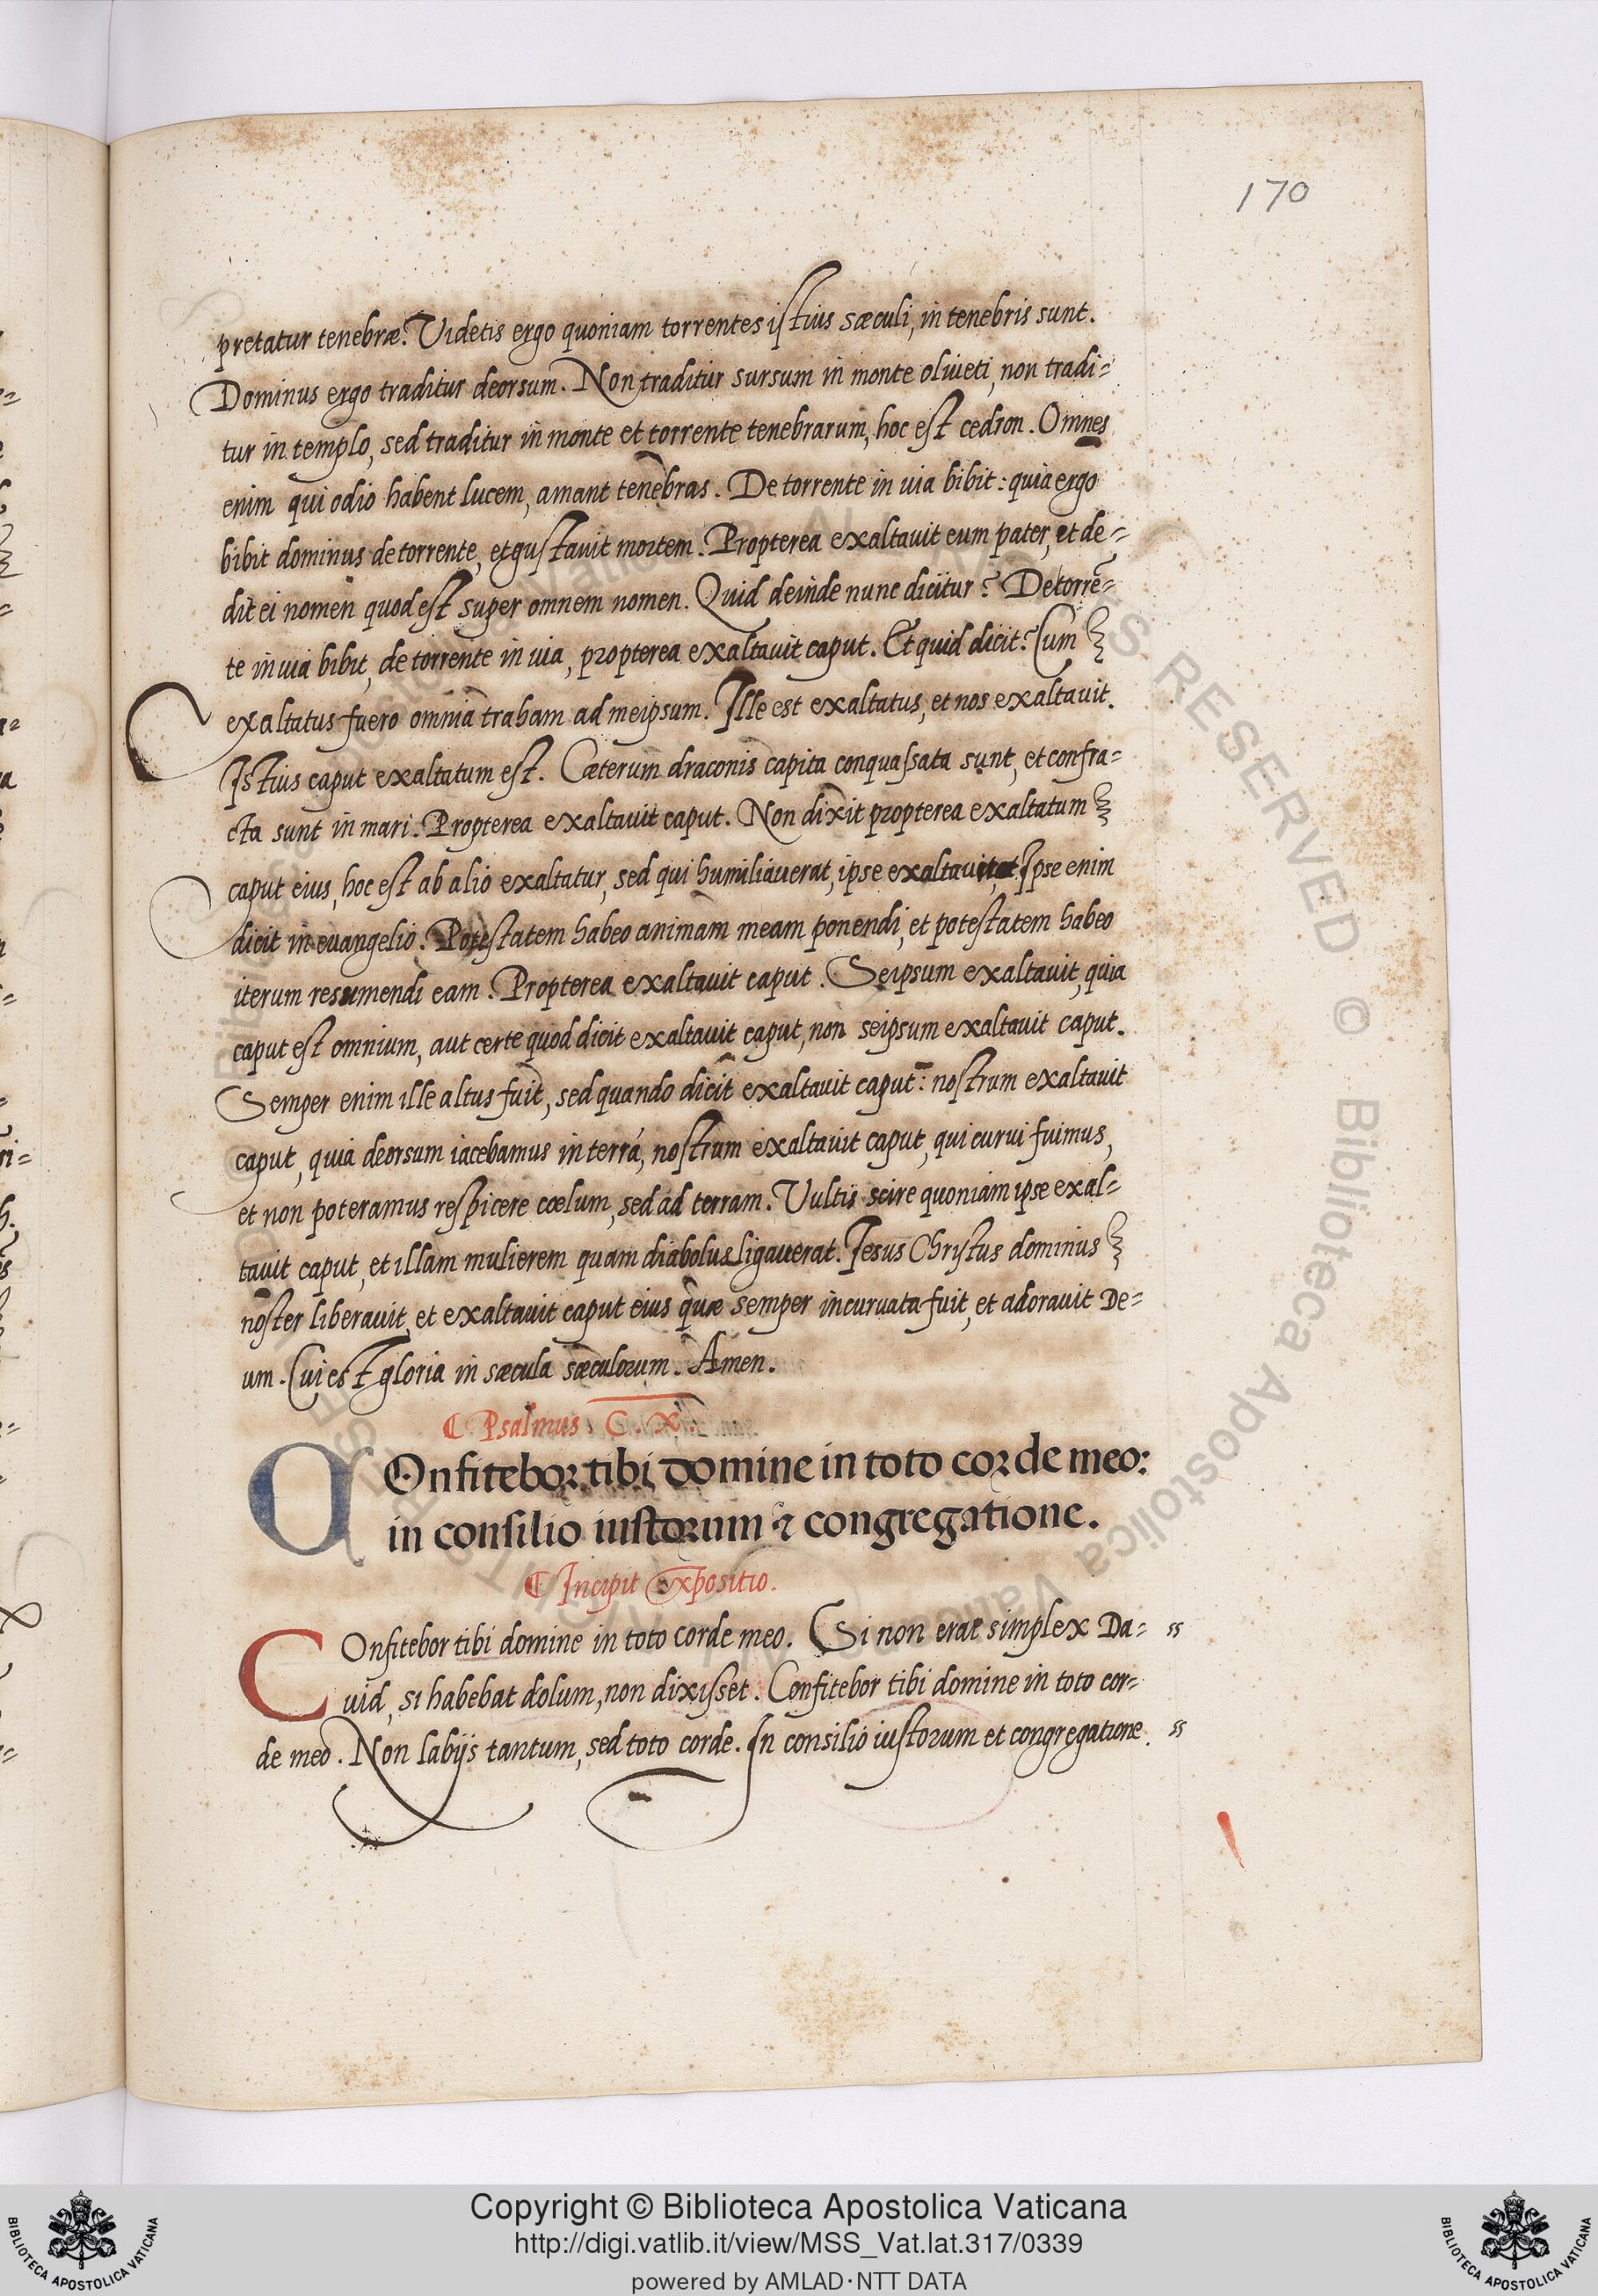 170
pretatur tenebræ. Videtis ergo quoniam torrentes istius sæculi, in tenebris sunt.
Dominus ergo traditur deorsum. Non traditur sursum in monte oliueti, non tradi=
tur in templo, sed traditur in monte et torrente tenebrarum, hoc est cedron. Omnes
enim qui odio habent lucem, amant tenebras. De torrente in uia bibit: quia ergo
bibit dominus de torrente, et gustauit mortem. Propterea exaltauit eum pater, et de=
dit ei nomen quod est super omnem nomen. Quid deinde nunc dicitur? De torrē=
te in uia bibit, de torrente in uia, propterea exaltauit caput. Et quid dicit? Cum
exaltatus fuero omnia traham ad meipsum. Ille est exaltatus, et nos exaltauit.
Istius caput exaltatum est. Cæterum draconis capita conquassata sunt, et confra=
cta sunt in mari. Propterea exaltauit caput. Non dixit propterea exaltatum
caput eius, hoc est ab alio exaltatur, sed qui humiliauerat, ipse exaltauit. Ipse enim
dicit in euangelio. Potestatem habeo animam meam ponendi, et potestatem habeo
iterum resumendi eam. Propterea exaltauit caput. Seipsum exaltauit, quia
caput est omnium, aut certe quod dicit exaltauit caput, non seipsum exaltauit caput.
Semper enim ille altus fuit, sed quando dicit exaltauit caput: nostrum exaltauit
caput, quia deorsum iacebamus in terra, nostrum exaltauit caput, qui curui fuimus,
et non poteramus respicere cœlum, sed ad terram. Vultis scire quoniam ipse exal=
tauit caput, et illam mulierem quam diabolus ligauerat. Iesus Christus dominus
noster liberauit, et exaltauit caput eius quæ semper incuruata fuit, et adorauit De=
um. Cui est gloria in sæcula sæculorum. Amen.
¶ Psalmus C.X.
COnfitebor tibi domine in toto corde meo:
in consilio iustorum & congregatione.
¶ Incipit Expositio.
COnfitebor tibi domine in toto corde meo. Si non erat simplex Da=
uid, si habebat dolum, non dixisset. Confitebor tibi domine in toto cor=
de meo. Non labijs tantum, sed toto corde. In consilio iustorum et congregatione.
Copyright © Biblioteca Apostolica Vaticana
http://digi.vatlib.it/view/MSS_Vat.lat.317/0339
powered by AMLAD·NTT DATA
BIBLIOTECA APOSTOLICA VATICANA
BIBLIOTECA APOSTOLICA VATICANA